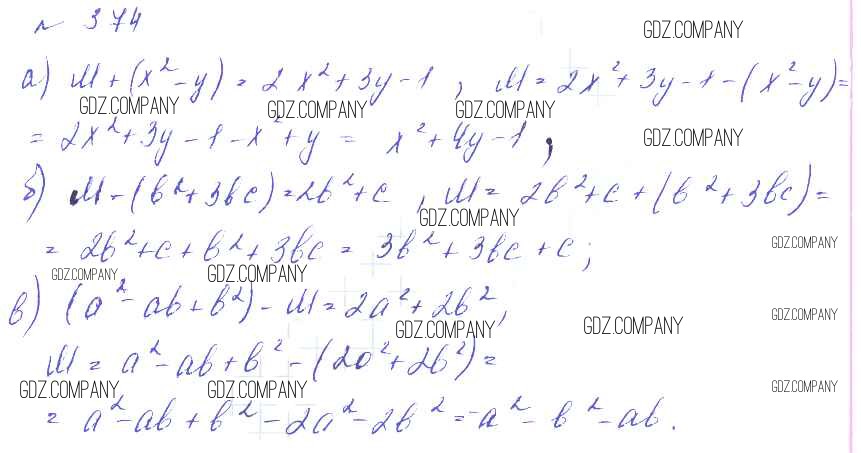 № 374
GDZ.COMPANY
а) M + (x² - y) = 2x² + 3y - 1 , M = 2x² + 3y - 1 - (x² - y) =
GDZ.COMPANY GDZ.COMPANY GDZ.COMPANY
= 2x² + 3y - 1 - x² + y = x² + 4y - 1 ;
GDZ.COMPANY
б) M - (b² + 3bc) = 2b² + c , M = 2b² + c + (b² + 3bc) =
GDZ.COMPANY
= 2b² + c + b² + 3bc = 3b² + 3bc + c ;
GDZ.COMPANY
GDZ.COMPANY GDZ.COMPANY
в) (a² - ab + b²) - M = 2a² + 2b² ,
GDZ.COMPANY
GDZ.COMPANY GDZ.COMPANY
M = a² - ab + b² - (2a² + 2b²) =
GDZ.COMPANY GDZ.COMPANY GDZ.COMPANY
= a² - ab + b² - 2a² - 2b² = -a² - b² - ab .